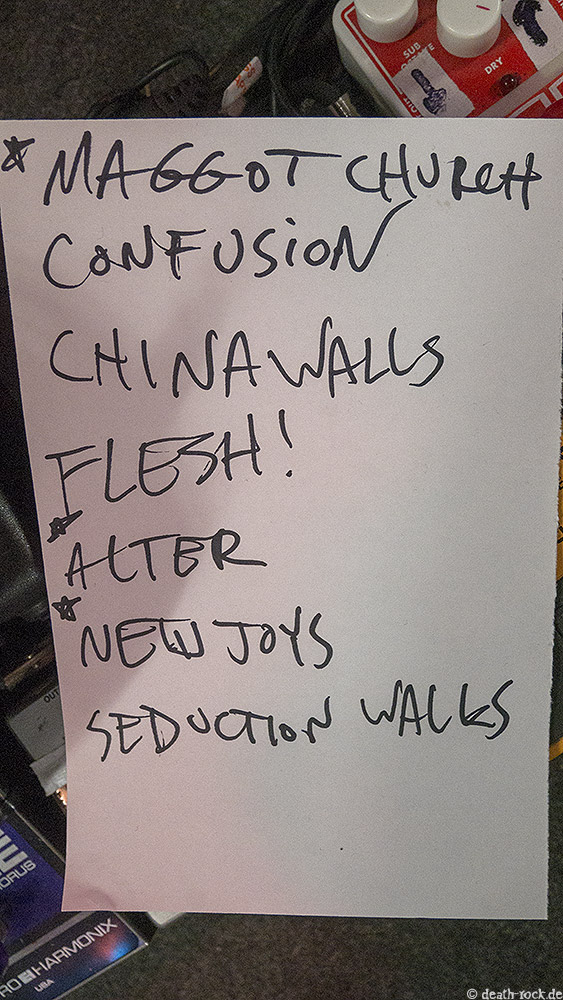 SUB
OCTAVE
DRY
MAGGOT CHURCH
CONFUSION
CHINA WALLS
FLESH!
ALTER
NEW JOYS
SEDUCTION WALKS
OUT
ORUS
RO HARMONIX
USA
© death-rock.de